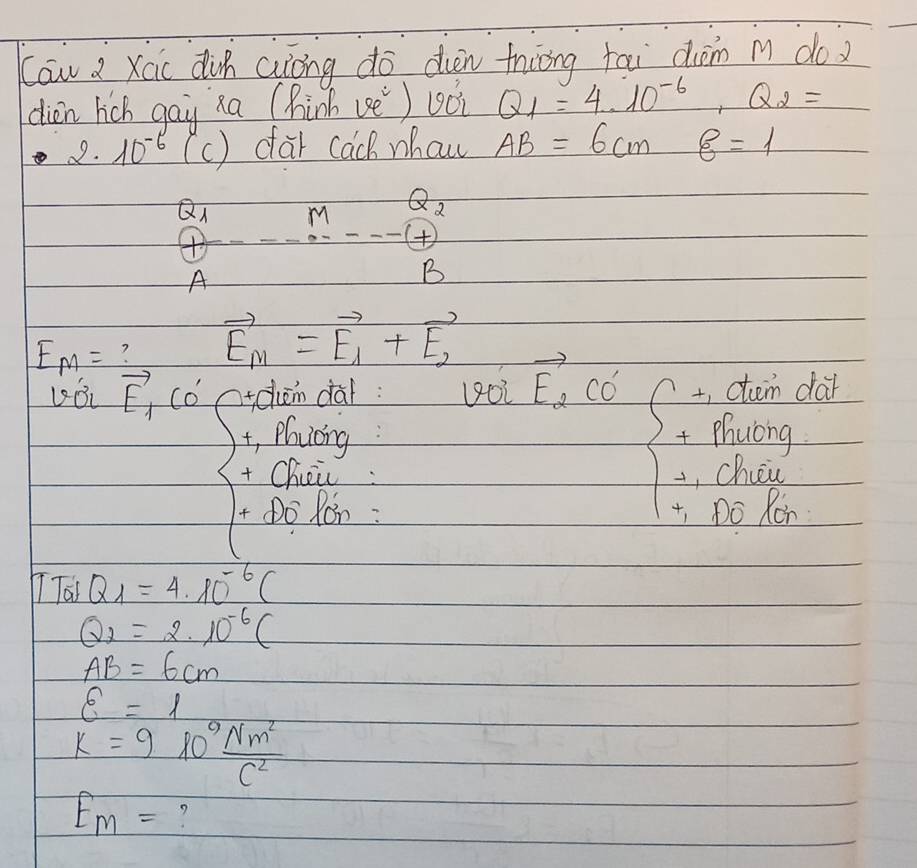 Câu 2 Xác định cường độ điện trường tại điểm M do 2
điện tích gây ra (hình vẽ) với Q1 = 4.10⁻⁶, Q2 =
2.10⁻⁶ (C) đặt cách nhau AB = 6cm ε = 1
Q1 M Q2
+ +
A B
EM = ? E⃗M = E⃗1 + E⃗2
với E⃗1 có { + điểm đặt : với E⃗2 có { +, điểm đặt
+, Phương : + Phương
+ Chiều : +, Chiều
+ Độ lớn : +, Độ lớn :
TTắt Q1 = 4.10⁻⁶C
Q2 = 2.10⁻⁶C
AB = 6cm
ε = 1
K = 9 10⁹ Nm²/C²
EM = ?